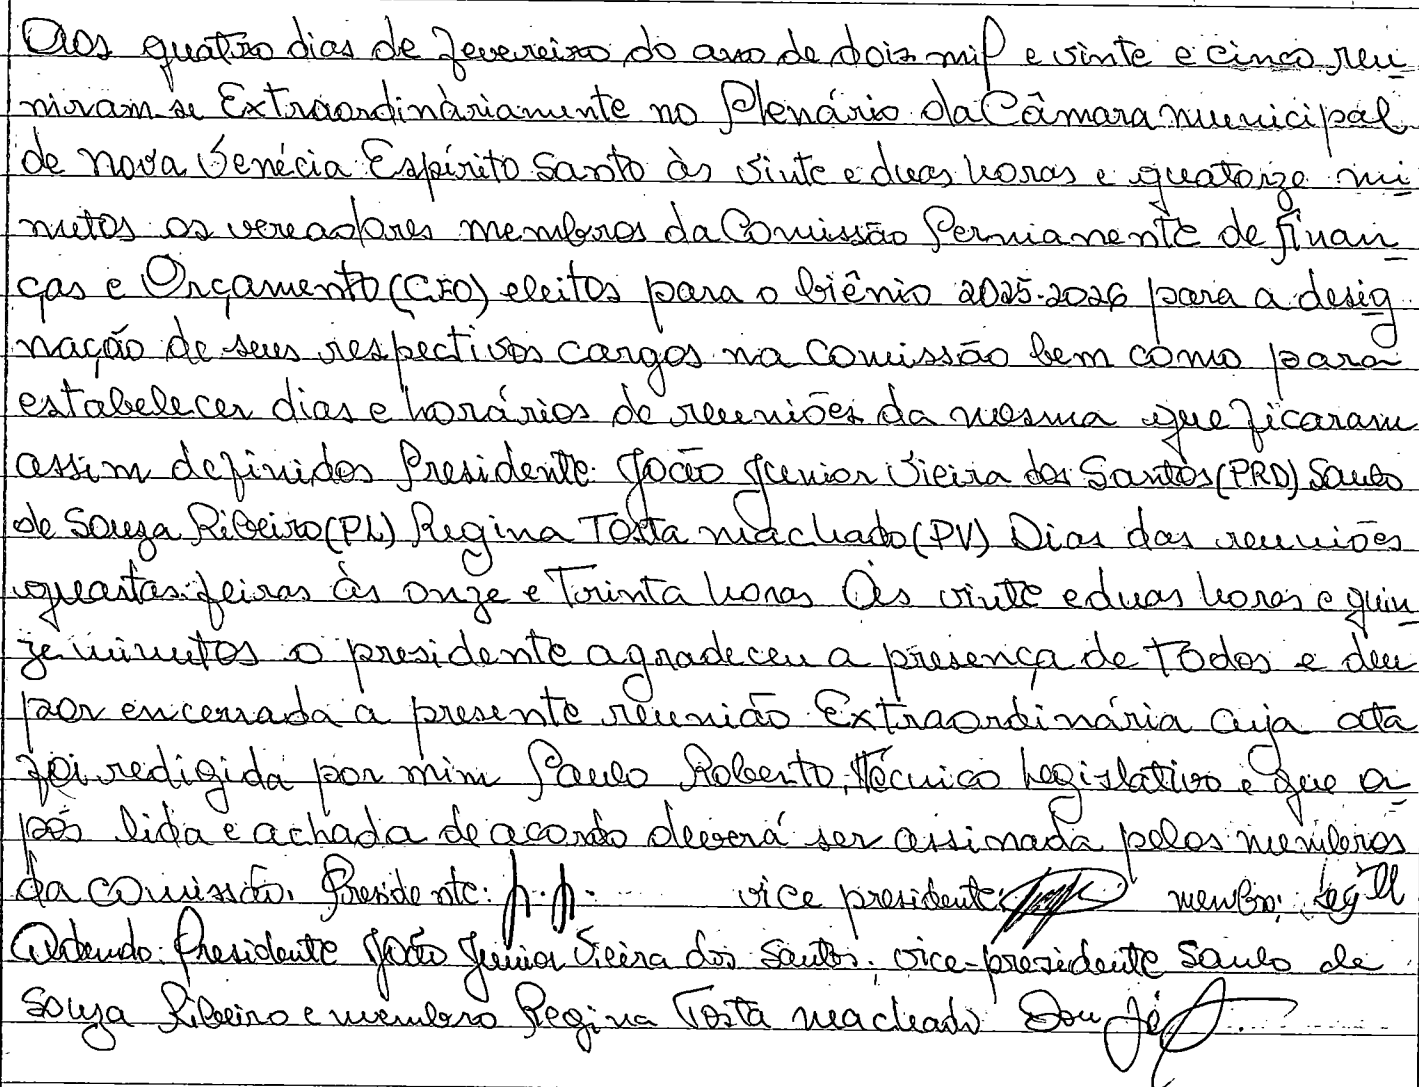 Aos quatro dias de fevereiro do ano de dois mil e vinte e cinco reu
niram-se Extraordinàriamente no Plenário da Câmara municipal
de nova Venécia Espírito Santo às vinte e duas horas e quatorze mi
nutos os vereadores membros da Comissão Permanente de finan
ças e Orçamento (CFO) eleitos para o biênio 2025-2026 para a desig
nação de seus respectivos cargos na comissão bem como para
estabelecer dias e horários de reuniões da mesma que ficaram
assim definidos Presidente: João Junior Vieira dos Santos (PRD) Saulo
de Souza Ribeiro (PL) Regina Tosta machado (PV) Dias das reuniões
quartas-feiras às onze e Trinta horas Às vinte e duas horas e quin
ze minutos o presidente agradeceu a presença de Todos e deu
por encerrada a presente reunião Extraordinária cuja ata
foi redigida por mim Paulo Roberto, Técnico Legislativo e que a
pós lida e achada de acordo deverá ser assinada pelos membros
da comissão. Presidente: vice presidente: membro:
Adendo: Presidente João Junior Vieira dos Santos, vice-presidente Saulo de
Souza Ribeiro e membro Regina Tosta machado Dou fé